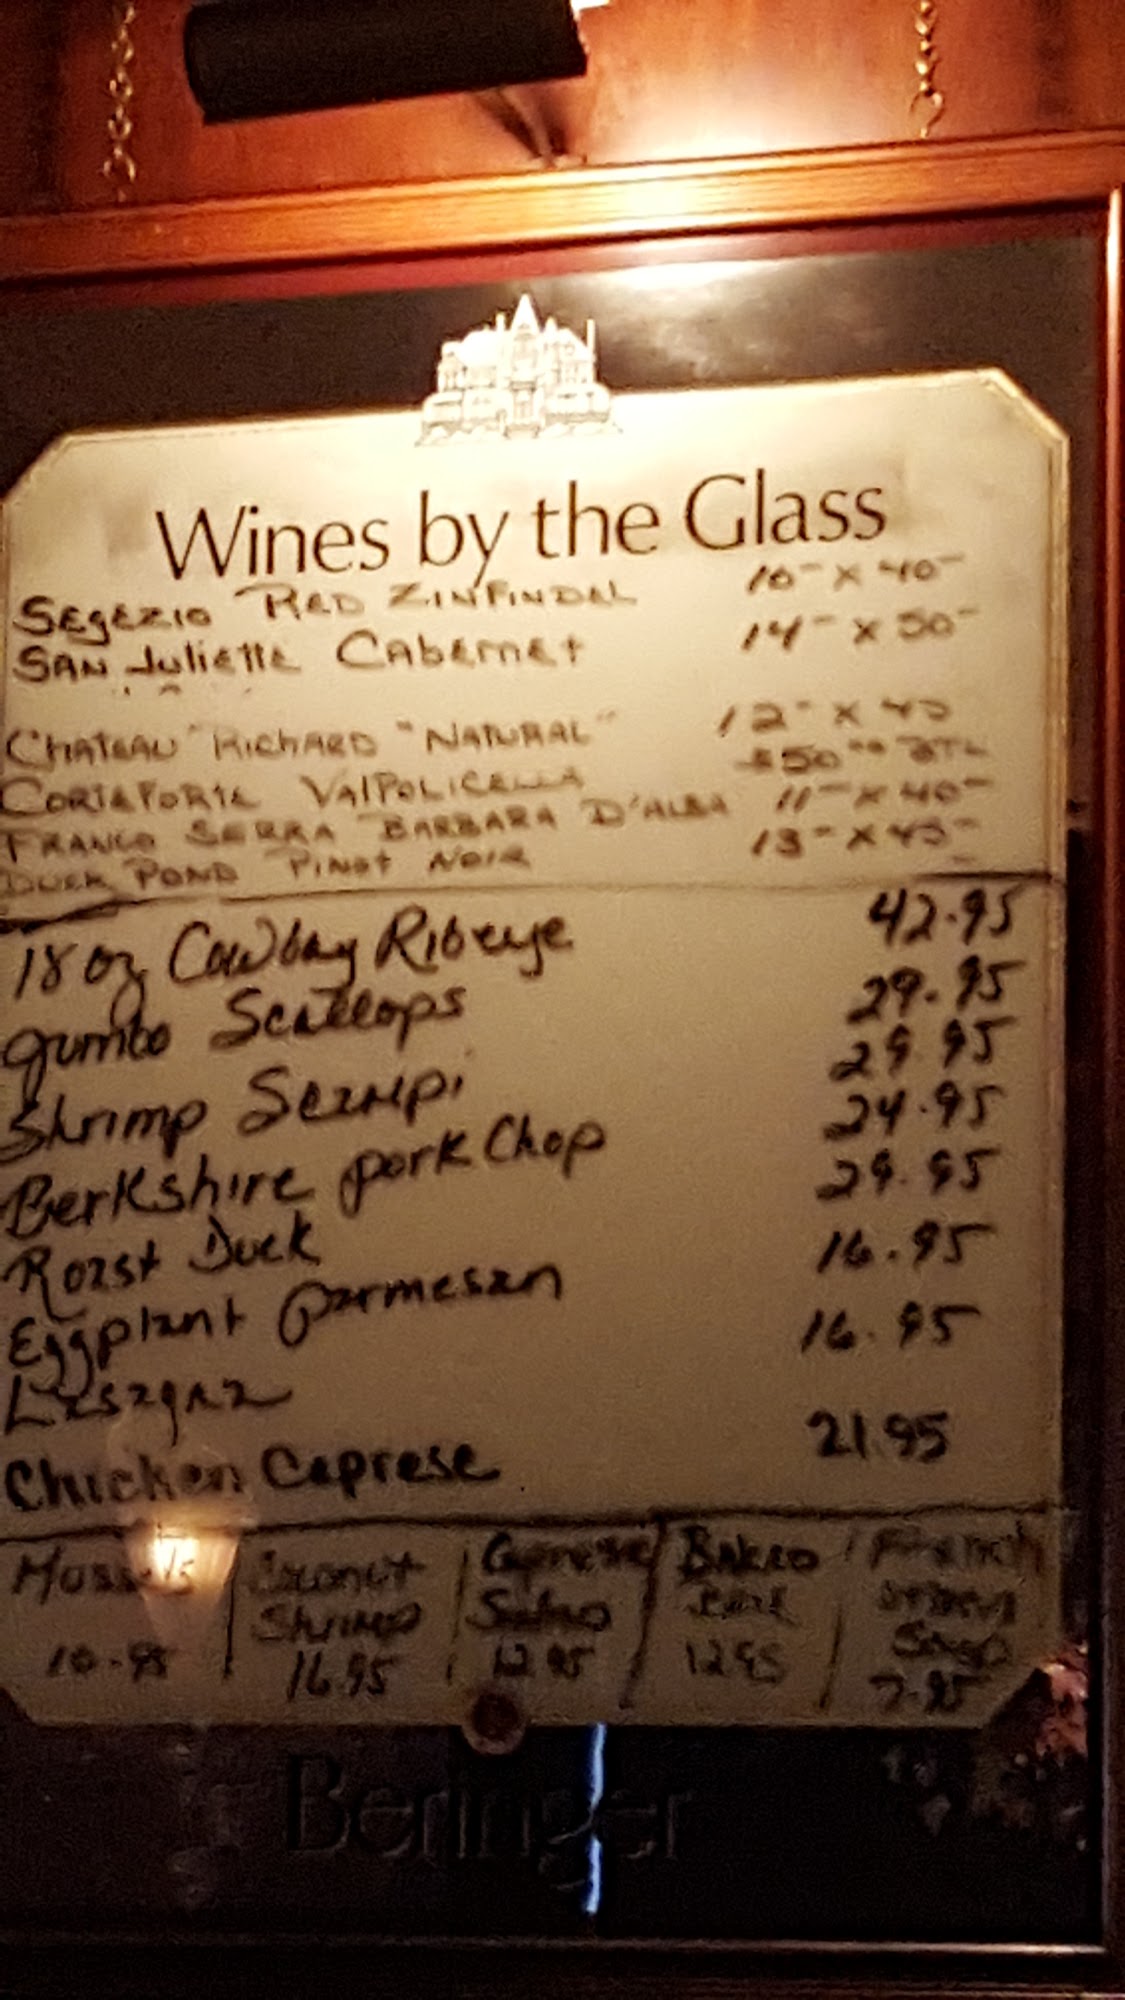 Wines by the Glass
SEGEZIO RED ZINFINDEL 10- X 40-
SAN JuliettE CabernEt 14- X 50-
CHATEAU "RICHARD "NATURAL" 12- X 45
CORTEFORTE VAlPOLICELLA $50 BTL
FRANCO SERRA BARBARA D'ALBA 11- X 40-
DUCK POND PINOt NOIR 13- X 45-
18 oz Cowboy Ribeye 42.95
gumbo Scallops 29.95
Shrimp Scampi 29.95
Berkshire pork Chop 24.95
Roast Duck 29.95
Eggplant parmesan 16.95
Lasagna 16.95
Chicken Caprese 21.95
Mussels Coconut Caprese Baked French
Shrimp Salad Brie onion
Soup
10.95 16.95 12.95 12.95 7.95
Beringer